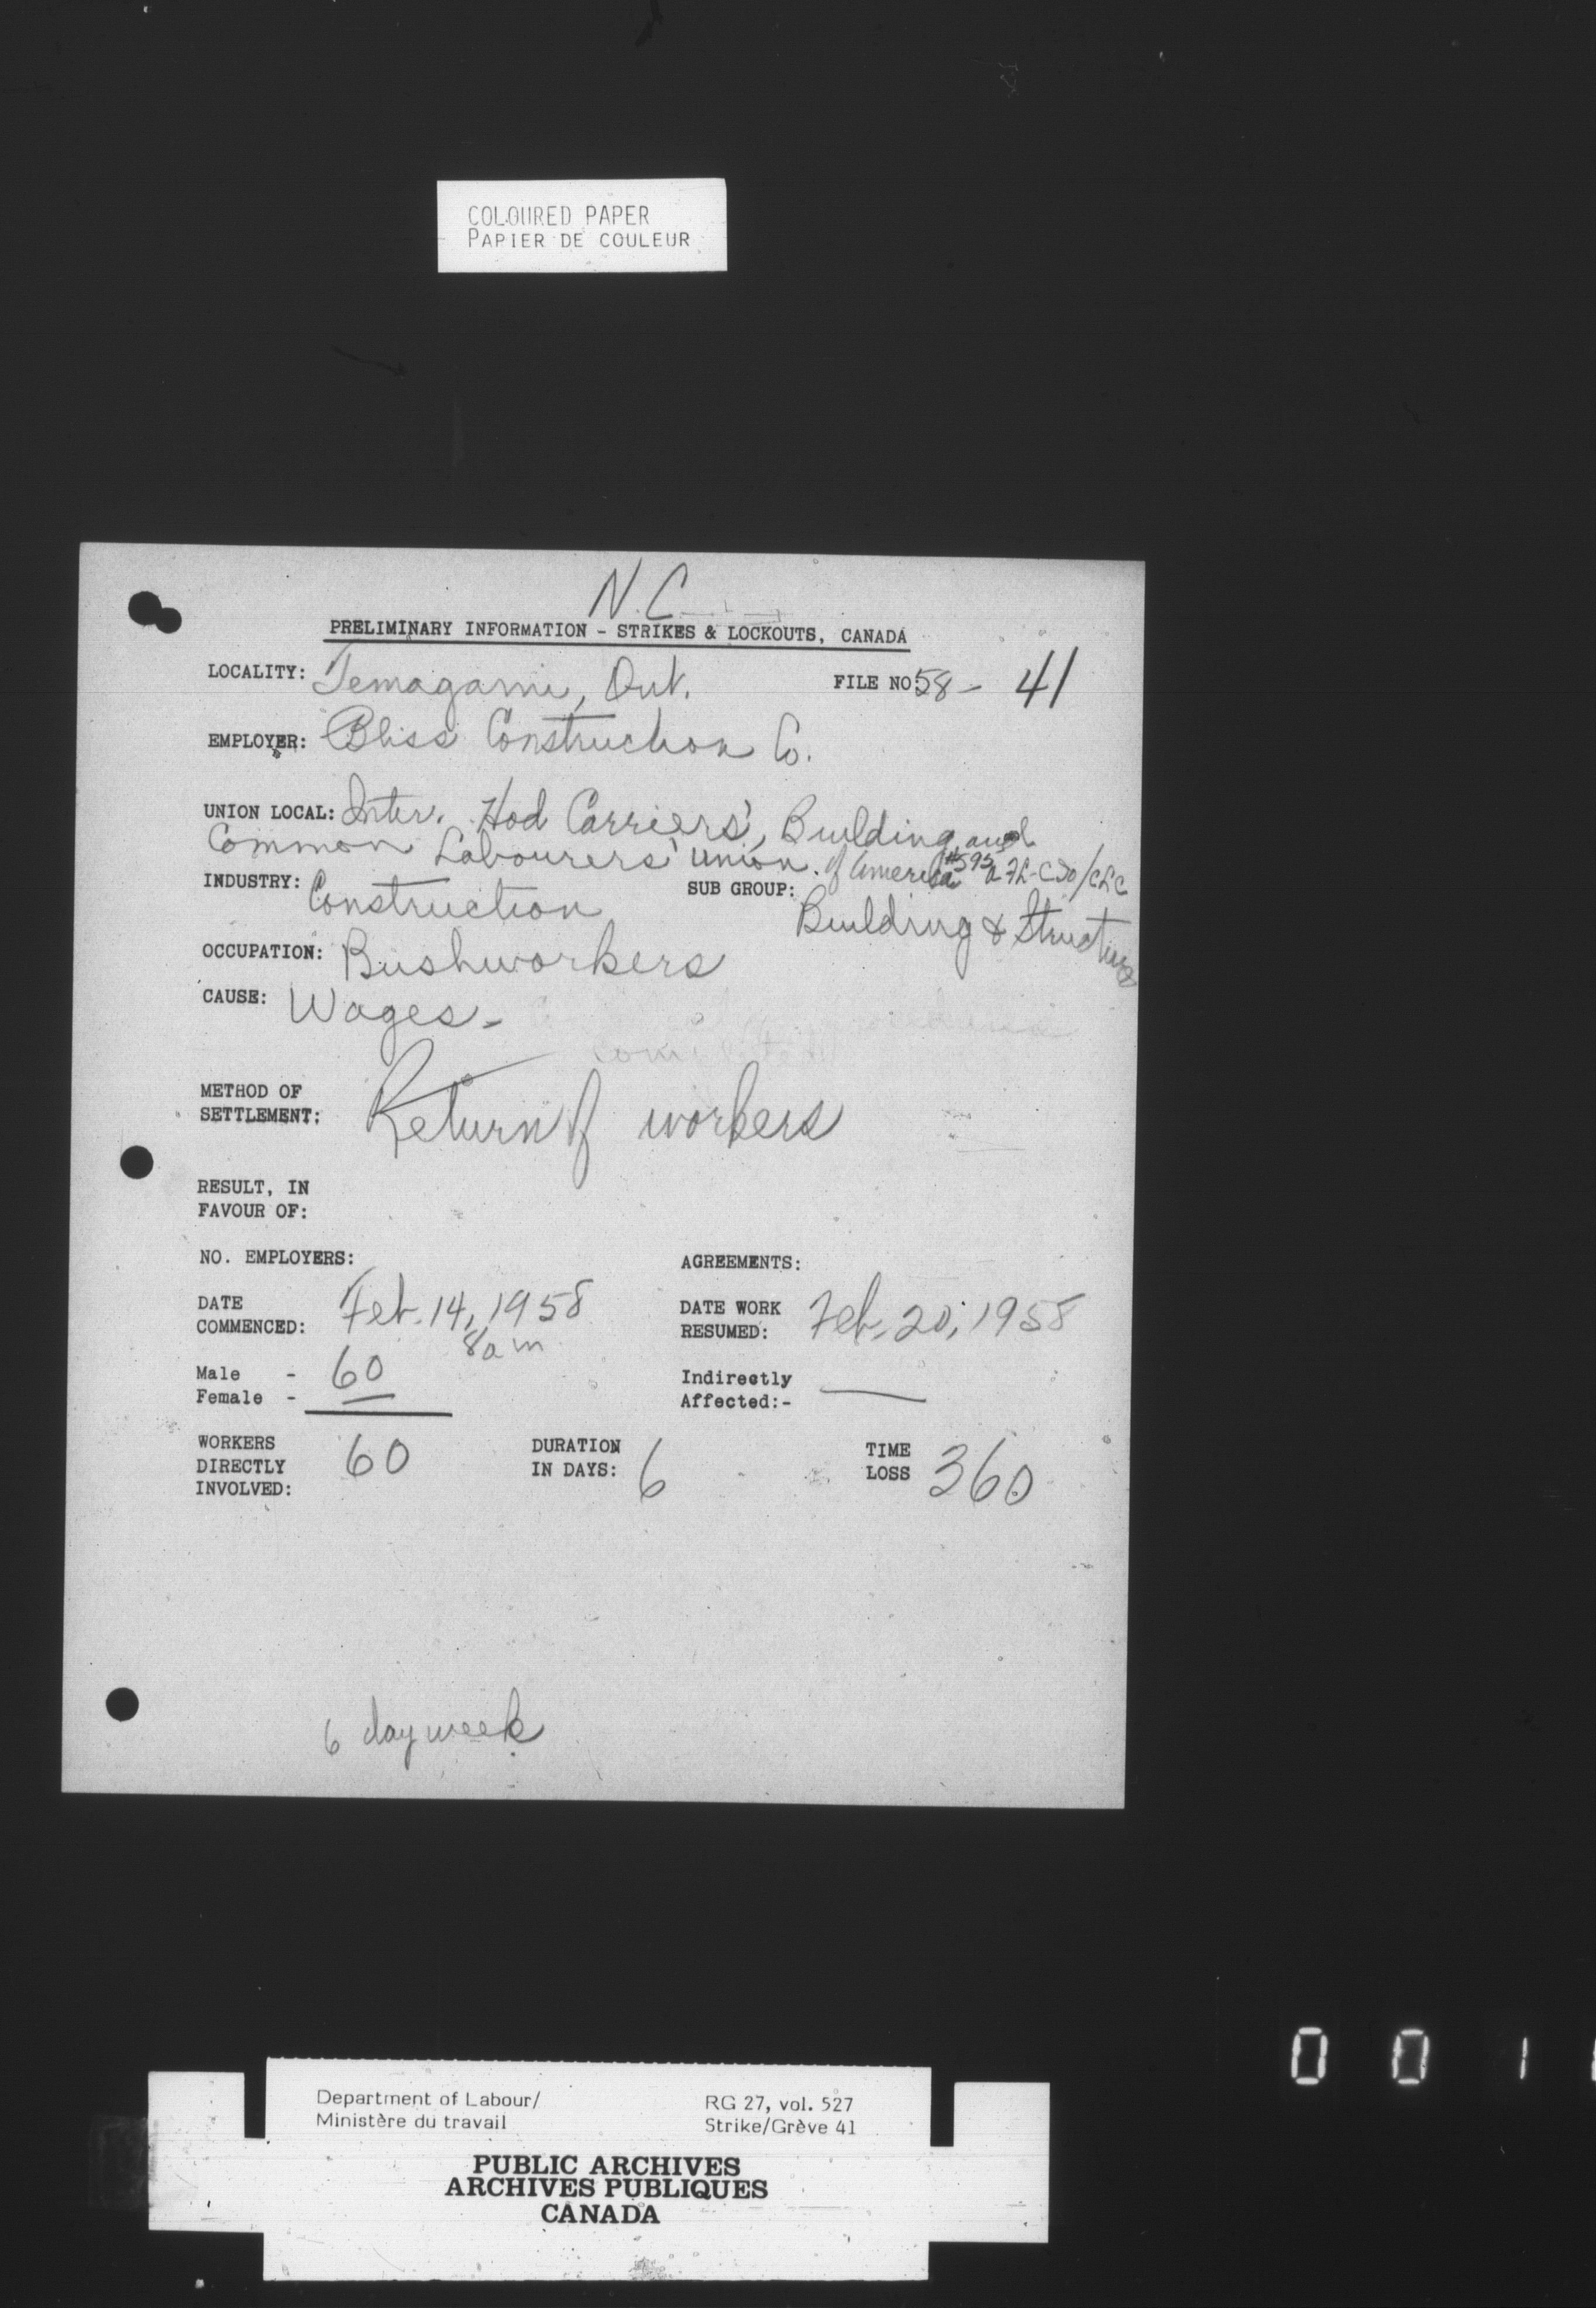 COLOURED PAPER
PAPIER DE COULEUR
N.C.
PRELIMINARY INFORMATION - STRIKES & LOCKOUTS, CANADA
LOCALITY: Temagami, Ont. FILE NO 58- 41
EMPLOYER: Bliss Construction Co.
UNION LOCAL: Inter. Hod Carriers', Building and
Common Labourers' Union of America #595 AFL-CIO/CLC
INDUSTRY: Construction SUB GROUP: Building & Structures
OCCUPATION: Bushworkers
CAUSE: Wages-
METHOD OF
SETTLEMENT: Return of workers
RESULT, IN
FAVOUR OF:
NO. EMPLOYERS: AGREEMENTS:
DATE
COMMENCED: Feb. 14, 1958 DATE WORK
RESUMED: Feb. 20, 1958
8 am
Male - 60 Indirectly
Female - — Affected:- —
WORKERS
DIRECTLY
INVOLVED: 60 DURATION
IN DAYS: 6 TIME
LOSS 360
6 day week
0 0 1
Department of Labour/ RG 27, vol. 527
Ministère du travail Strike/Grève 41
PUBLIC ARCHIVES
ARCHIVES PUBLIQUES
CANADA